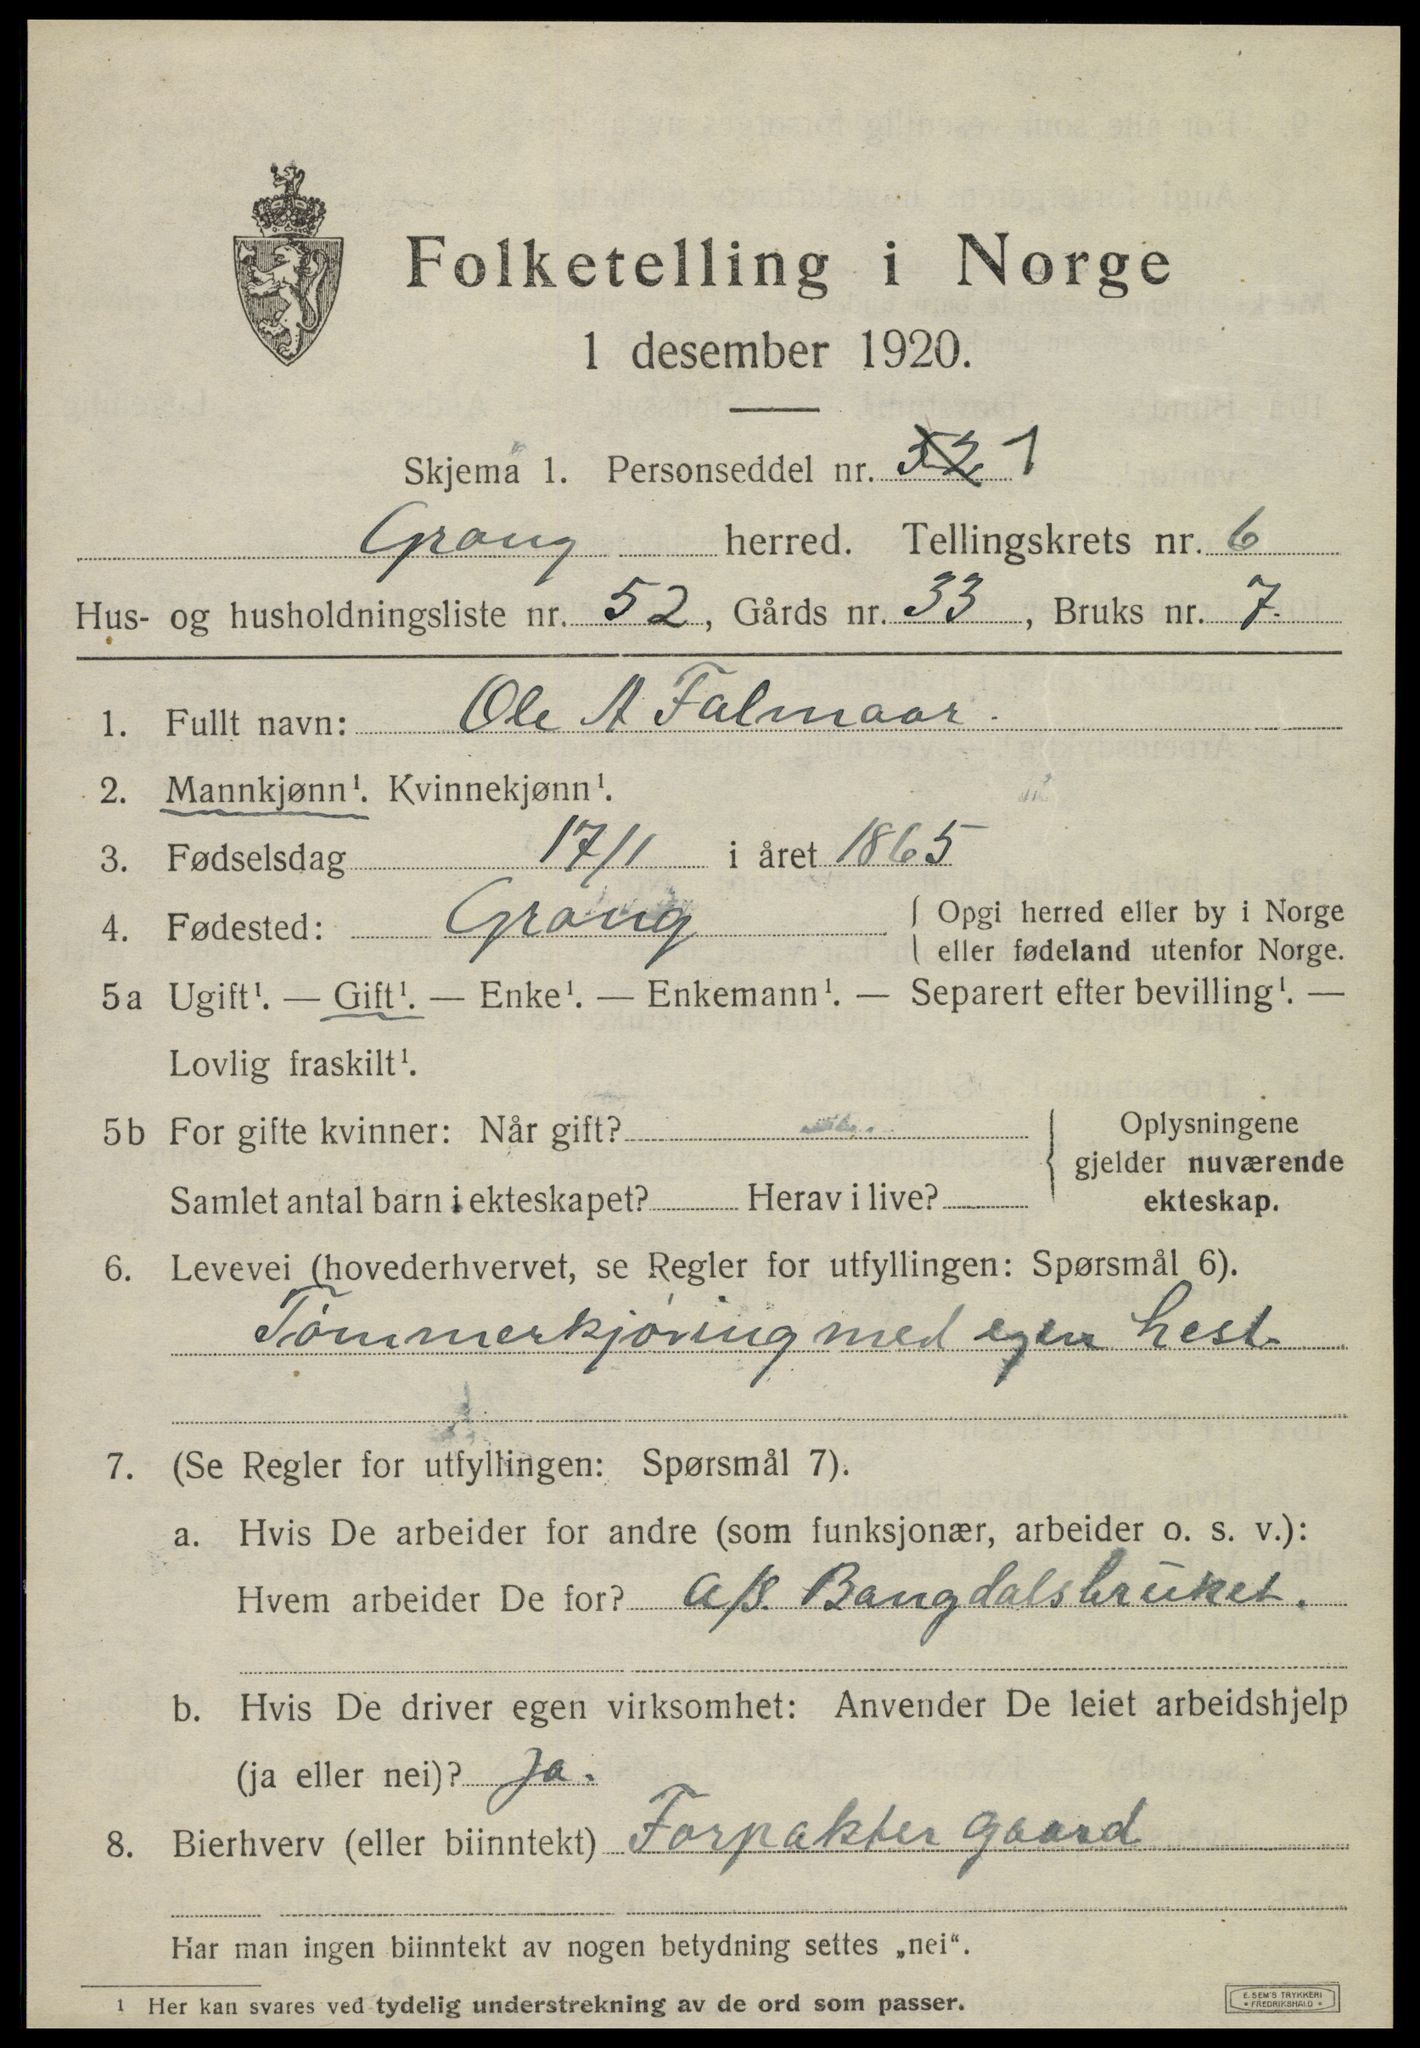 Folketelling i Norge
1 desember 1920.
Skjema 1. Personseddel nr. 1
Grong herred. Tellingskrets nr. 6
Hus- og husholdningsliste nr. 52, Gårds nr. 33, Bruks nr. 7.
1. Fullt navn: Ole A Falmaar.
2. Mannkjønn¹. Kvinnekjønn¹.
3. Fødselsdag 17/1 i året 1865
4. Fødested: Grong { Opgi herred eller by i Norge
eller fødeland utenfor Norge.
5a Ugift¹. — Gift¹. — Enke¹. — Enkemann¹. — Separert efter bevilling¹. —
Lovlig fraskilt¹.
5b For gifte kvinner: Når gift?
Samlet antal barn i ekteskapet? Herav i live?
Oplysningene
gjelder nuværende
ekteskap.
6. Levevei (hovederhvervet, se Regler for utfyllingen: Spørsmål 6).
Tømmerkjøring med egen hest
7. (Se Regler for utfyllingen: Spørsmål 7).
a. Hvis De arbeider for andre (som funksjonær, arbeider o. s. v.):
Hvem arbeider De for? A/S. Bangdalsbruket.
b. Hvis De driver egen virksomhet: Anvender De leiet arbeidshjelp
(ja eller nei)? Ja.
8. Bierhverv (eller biinntekt) Forpakter gaard
Har man ingen biinntekt av nogen betydning settes „nei“.
¹ Her kan svares ved tydelig understrekning av de ord som passer.
E. SEM'S TRYKKERI
* FREDRIKSHALD *